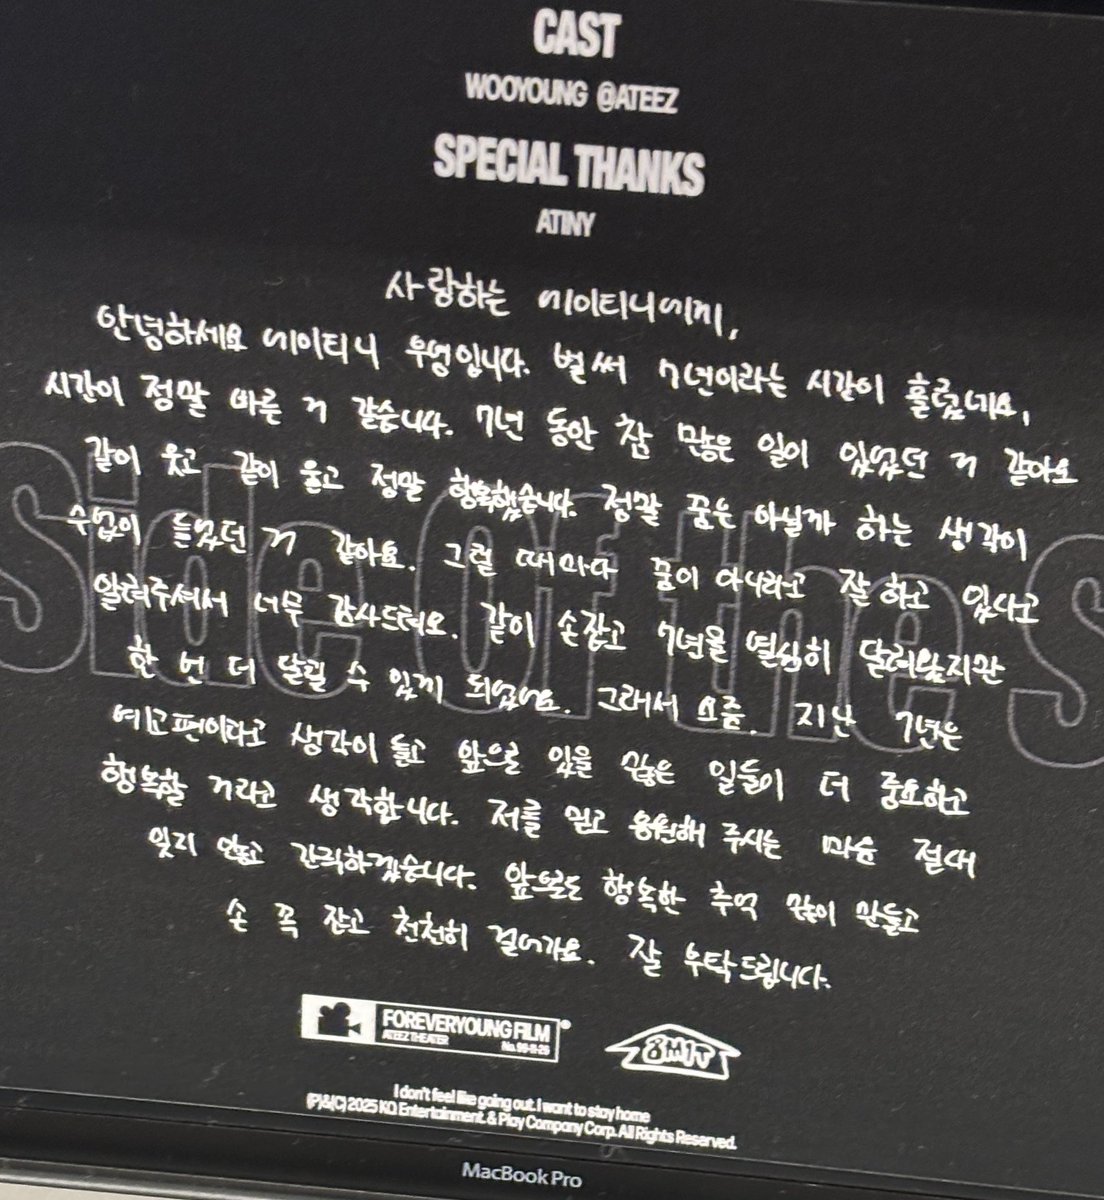 CAST
WOOYOUNG @ATEEZ
SPECIAL THANKS
ATINY
사랑하는 에이티니에게,
안녕하세요 에이티니 우영입니다. 벌써 7년이라는 시간이 흘렀네요,
시간이 정말 빠른 거 같습니다. 7년 동안 참 많은 일이 있었던 거 같아요
같이 웃고 같이 울고 정말 행복했습니다. 정말 꿈은 아닐까 하는 생각이
수없이 들었던 거 같아요. 그럴 때마다 꿈이 아니라고 잘하고 있다고
알려주셔서 너무 감사드려요. 같이 손잡고 7년을 열심히 달려왔지만
한 번 더 달릴 수 있게 되었어요. 그래서 요즘, 지난 7년은
예고편이라고 생각이 들고 앞으로 있을 많은 일들이 더 중요하고
행복할 거라고 생각합니다. 저를 믿고 응원해 주시는 마음 절대
잊지 않고 간직하겠습니다. 앞으로도 행복한 추억 많이 만들고
손 꼭 잡고 천천히 걸어가요. 잘 부탁드립니다.
Side Of the S
FOREVERYOUNG FILM
ATEEZ THEATER
8M1T
I don't feel like going out. I want to stay home
(P)&(C) 2025 KQ Entertainment. & Play Company Corp. All Rights Reserved.
MacBook Pro